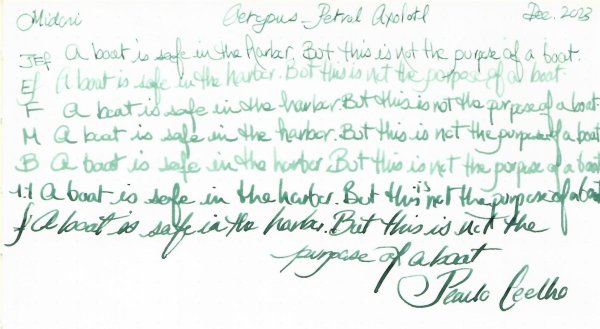 Midori Octopus - Petrol Axolotl Dec. 2023
JEf A boat is safe in the harbor. But this is not the purpose of a boat.
Ef A boat is safe in the harbor. But this is not the purpose of a boat
F A boat is safe in the harbor. But this is not the purpose of a boat.
M A boat is safe in the harbor. But this is not the purpose of a boat
B A boat is safe in the harbor. But this is not the purpose of a boat
1.1 A boat is safe in the harbor. But this is not the purpose of a boat
f A boat is safe in the harbor. But this is not the
purpose of a boat
Paulo Coelho